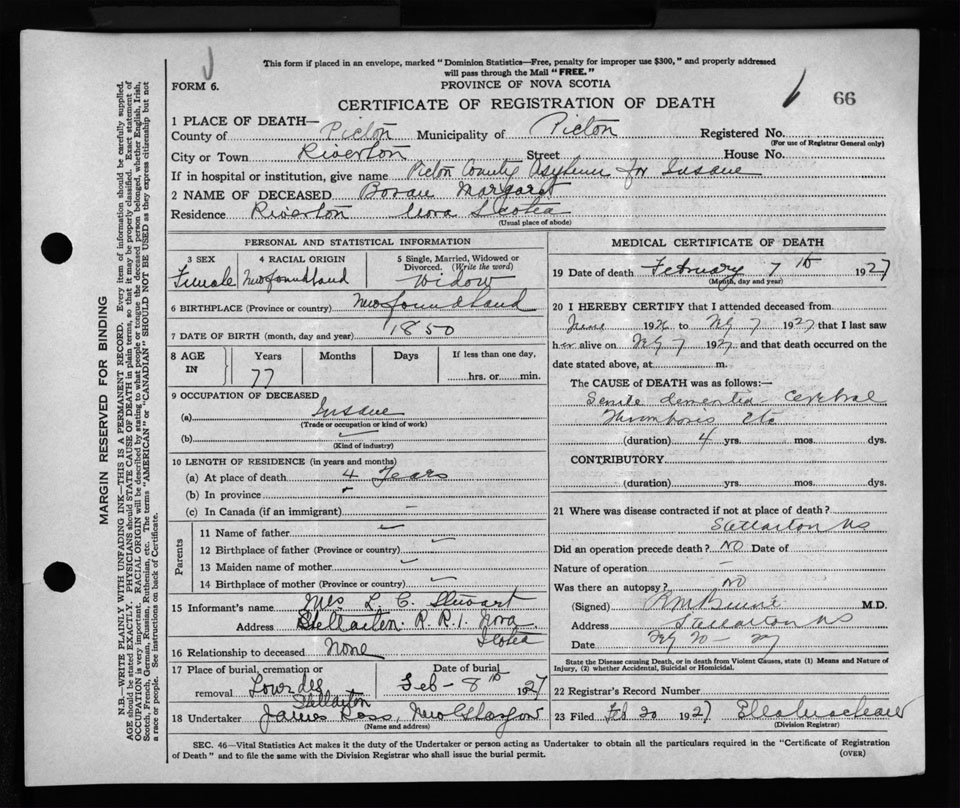 This form if placed in an envelope, marked "Dominion Statistics—Free, penalty for improper use $300," and properly addressed
will pass through the Mail "FREE."
FORM 6.
PROVINCE OF NOVA SCOTIA
CERTIFICATE OF REGISTRATION OF DEATH
66
1 PLACE OF DEATH—
County of Pictou Municipality of Pictou Registered No.
(For use of Registrar General only)
City or Town Riverton Street House No.
If in hospital or institution, give name Pictou County Asylum for Insane
2 NAME OF DECEASED Margaret
Residence Riverton Nova Scotia
(Usual place of abode)
PERSONAL AND STATISTICAL INFORMATION
3 SEX
Female
4 RACIAL ORIGIN
Newfoundland
5 Single, Married, Widowed or
Divorced. (Write the word)
Widow
6 BIRTHPLACE (Province or country) Newfoundland
7 DATE OF BIRTH (month, day and year) 1850
8 AGE IN
Years Months Days If less than one day,
77 hrs. or min.
9 OCCUPATION OF DECEASED
(a) Insane
(Trade or occupation or kind of work)
(b)
(Kind of industry)
10 LENGTH OF RESIDENCE (in years and months)
(a) At place of death 4 Years
(b) In province
(c) In Canada (if an immigrant) —
Parents
11 Name of father
12 Birthplace of father (Province or country)
13 Maiden name of mother
14 Birthplace of mother (Province or country)
15 Informant's name Mrs L. C. Stewart
Address Stellarton. R. R. 1. Nova
Scotia
16 Relationship to deceased None
17 Place of burial, cremation or
removal Lourdes
Stellarton
Date of burial
Feb - 8th 1927
18 Undertaker James Ross, New Glasgow
(Name and address)
MEDICAL CERTIFICATE OF DEATH
19 Date of death February 7th 1927
(Month, day and year)
20 I HEREBY CERTIFY that I attended deceased from
June 1926 to Feby 7 1927 that I last saw
her alive on Feby 7 1927 and that death occurred on the
date stated above, at m.
The CAUSE of DEATH was as follows:—
Senile dementia Cerebral
Thrombosis Etc
(duration) 4 yrs. mos. dys.
CONTRIBUTORY
(duration) yrs. mos. dys.
21 Where was disease contracted if not at place of death?
Stellarton NS
Did an operation precede death? No Date of
Nature of operation —
Was there an autopsy? No
(Signed) M.D.
Address Stellarton NS
Date Feby 20 - 27
State the Disease causing Death, or in death from Violent Causes, state (1) Means and Nature of
Injury, (2) whether Accidental, Suicidal or Homicidal.
22 Registrar's Record Number
23 Filed Feb 20 1927
(Division Registrar)
SEC. 46—Vital Statistics Act makes it the duty of the Undertaker or person acting as Undertaker to obtain all the particulars required in the "Certificate of Registration
of Death" and to file the same with the Division Registrar who shall issue the burial permit.
(OVER)
MARGIN RESERVED FOR BINDING
N.B.—WRITE PLAINLY WITH UNFADING INK—THIS IS A PERMANENT RECORD. Every item of information should be carefully supplied.
AGE should be stated EXACTLY. PHYSICIANS should STATE CAUSE OF DEATH in plain terms, so that it may be properly classified. Exact statement of
OCCUPATION is very important. RACIAL ORIGIN will be described by stating to what people or tongue the deceased person belonged, whether English, Irish,
Scotch, French, German, Russian, Ruthenian, etc. The terms "AMERICAN" or "CANADIAN" SHOULD NOT BE USED as they express citizenship but not
a race or people. See instructions on back of Certificate.